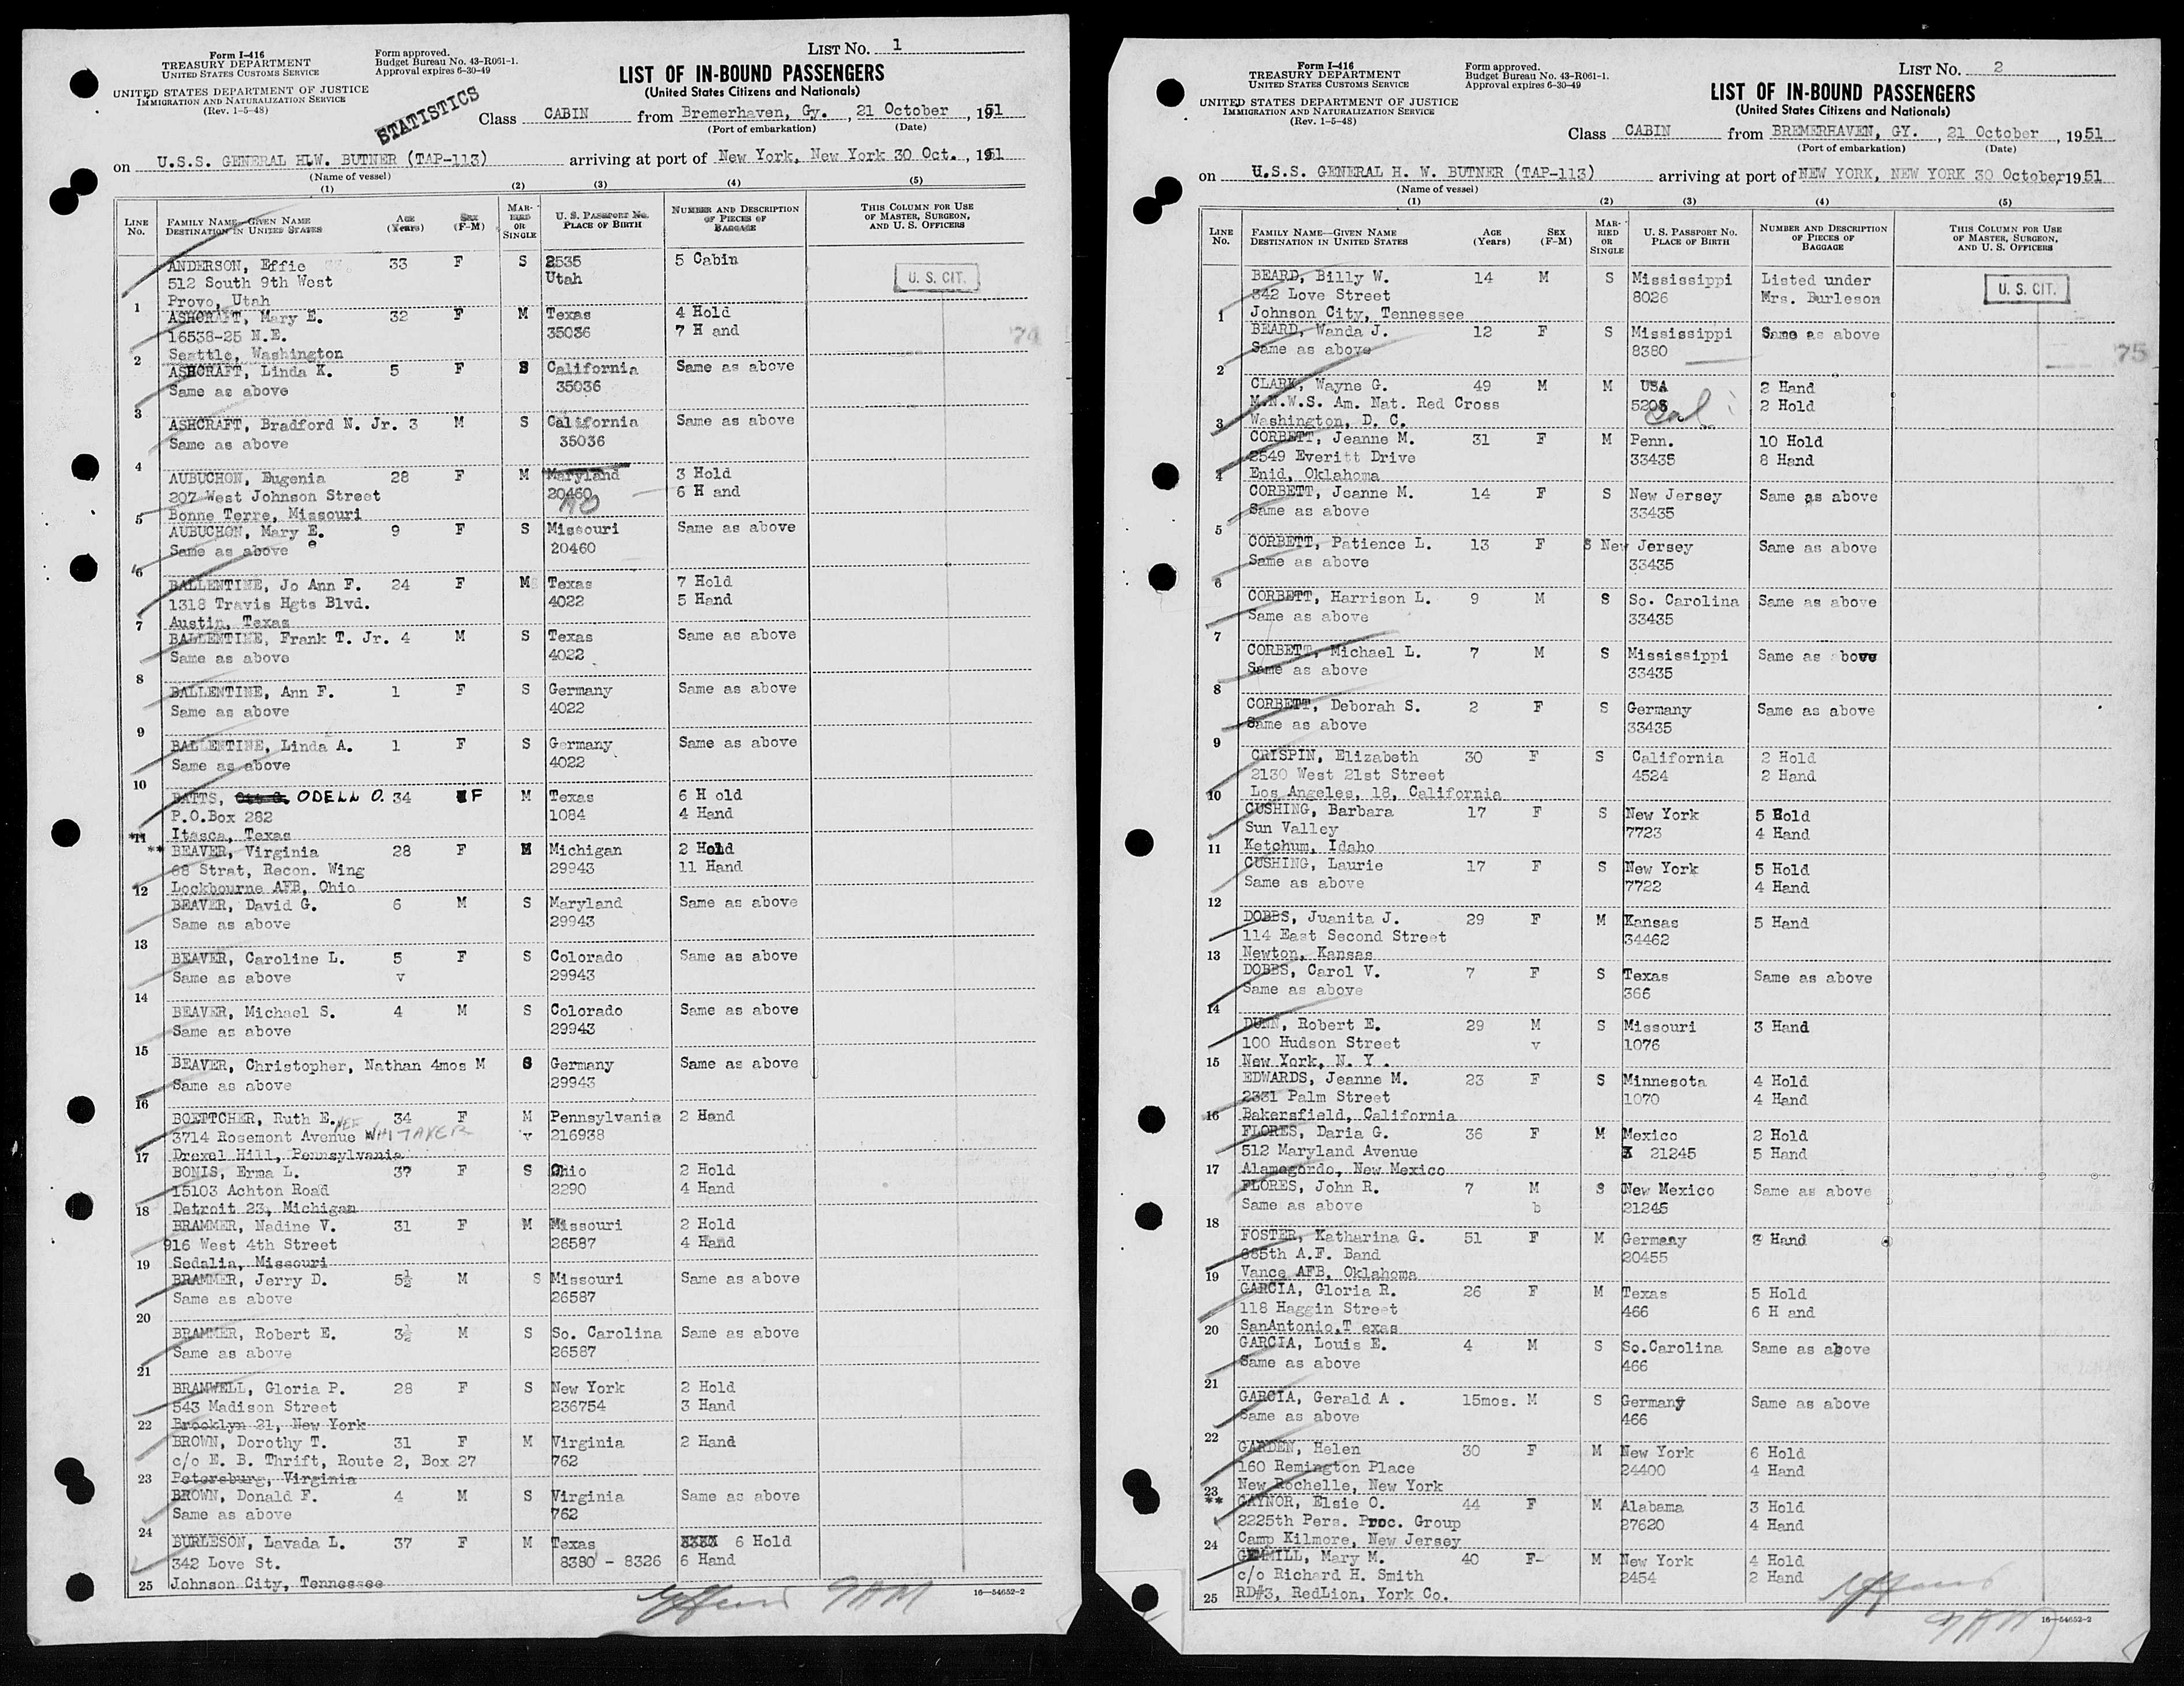 LIST NO. 1
Form I-416
TREASURY DEPARTMENT
UNITED STATES CUSTOMS SERVICE
UNITED STATES DEPARTMENT OF JUSTICE
IMMIGRATION AND NATURALIZATION SERVICE
(Rev. 1-5-48)
Form approved.
Budget Bureau No. 43-R061-1.
Approval expires 6-30-49
STATISTICS
LIST OF IN-BOUND PASSENGERS
(United States Citizens and Nationals)
Class CABIN from Bremerhaven, Gy. , 21 October , 1951
(Port of embarkation) (Date)
on U.S.S. GENERAL H.W. BUTNER (TAP-113) arriving at port of New York, New York 30 Oct. , 1951
(Name of vessel)
(1) (2) (3) (4) (5)
LINE No. FAMILY NAME—GIVEN NAME DESTINATION IN UNITED STATES AGE (Years) SEX (F-M) MARRIED OR SINGLE U. S. PASSPORT No. PLACE OF BIRTH NUMBER AND DESCRIPTION OF PIECES OF BAGGAGE THIS COLUMN FOR USE OF MASTER, SURGEON, AND U. S. OFFICERS
ANDERSON, Effie 33 F S 2535 5 Cabin U. S. CIT.
512 South 9th West Utah
1 Provo, Utah
ASHCRAFT, Mary E. 32 F M Texas 4 Hold
16538-25 N.E. 35036 7 H and 74
2 Seattle, Washington
ASHCRAFT, Linda K. 5 F S California Same as above
Same as above 35036
3
ASHCRAFT, Bradford N. Jr. 3 M S California Same as above
Same as above 35036
4
AUBUCHON, Eugenia 28 F M Maryland 3 Hold
207 West Johnson Street 20460 6 H and
5 Bonne Terre, Missouri MO
AUBUCHON, Mary E. 9 F S Missouri Same as above
Same as above e 20460
6
BALLENTINE, Jo Ann F. 24 F M Texas 7 Hold
1318 Travis Hgts Blvd. 4022 5 Hand
7 Austin, Texas
BALLENTINE, Frank T. Jr. 4 M S Texas Same as above
Same as above 4022
8
BALLENTINE, Ann F. 1 F S Germany Same as above
Same as above 4022
9
BALLENTINE, Linda A. 1 F S Germany Same as above
Same as above 4022
10
BATTS, ODELL O. 34 F M Texas 6 H old
P.O.Box 282 1084 4 Hand
*11 Itasca, Texas
** BEAVER, Virginia 28 F M Michigan 2 Hold
68 Strat, Recon. Wing 29943 11 Hand
12 Lockbourne AFB, Ohio
BEAVER, David G. 6 M S Maryland Same as above
Same as above 29943
13
BEAVER, Caroline L. 5 F S Colorado Same as above
Same as above v 29943
14
BEAVER, Michael S. 4 M S Colorado Same as above
Same as above 29943
15
BEAVER, Christopher, Nathan 4mos M S Germany Same as above
Same as above 29943
16
BOETTCHER, Ruth E. NEE 34 F M Pennsylvania 2 Hand
3714 Rosemont Avenue WHITAKER v 216938
17 Drexel Hill, Pennsylvania
BONIS, Erma L. 37 F S Ohio 2 Hold
15103 Achton Road 2290 4 Hand
18 Detroit 23, Michigan
BRAMMER, Nadine V. 31 F M Missouri 2 Hold
916 West 4th Street 26587 4 Hand
19 Sedalia, Missouri
BRAMMER, Jerry D. 5½ M S Missouri Same as above
Same as above 26587
20
BRAMMER, Robert E. 3½ M S So. Carolina Same as above
Same as above 26587
21
BRAMWELL, Gloria P. 28 F S New York 2 Hold
543 Madison Street 236754 3 Hand
22 Brooklyn 21, New York
BROWN, Dorothy T. 31 F M Virginia 2 Hand
c/o E. B. Thrift, Route 2, Box 27 762
23 Petersburg, Virginia
BROWN, Donald F. 4 M S Virginia Same as above
Same as above 762
24
BURLESON, Lavada L. 37 F M Texas 6 Hold
342 Love St. 8380 - 8326 6 Hand
25 Johnson City, Tennessee
9AM
16—54652-2
LIST NO. 2
Form I-416
TREASURY DEPARTMENT
UNITED STATES CUSTOMS SERVICE
UNITED STATES DEPARTMENT OF JUSTICE
IMMIGRATION AND NATURALIZATION SERVICE
(Rev. 1-5-48)
Form approved.
Budget Bureau No. 43-R061-1.
Approval expires 6-30-49
LIST OF IN-BOUND PASSENGERS
(United States Citizens and Nationals)
Class CABIN from BREMERHAVEN, GY. , 21 October , 1951
(Port of embarkation) (Date)
on U.S.S. GENERAL H. W. BUTNER (TAP-113) arriving at port of NEW YORK, NEW YORK 30 October, 1951
(Name of vessel)
(1) (2) (3) (4) (5)
LINE No. FAMILY NAME—GIVEN NAME DESTINATION IN UNITED STATES AGE (Years) SEX (F-M) MARRIED OR SINGLE U. S. PASSPORT No. PLACE OF BIRTH NUMBER AND DESCRIPTION OF PIECES OF BAGGAGE THIS COLUMN FOR USE OF MASTER, SURGEON, AND U. S. OFFICERS
BEARD, Billy W. 14 M S Mississippi Listed under U. S. CIT.
342 Love Street 8026 Mrs. Burleson
1 Johnson City, Tennessee
BEARD, Wanda J. 12 F S Mississippi Same as above
Same as above 8380 75
2
CLARK, Wayne G. 49 M M USA 2 Hand
M.N.W.S. Am. Nat. Red Cross 5208 2 Hold
3 Washington, D. C. Cal
CORBETT, Jeanne M. 31 F M Penn. 10 Hold
2549 Everitt Drive 33435 8 Hand
4 Enid, Oklahoma
CORBETT, Jeanne M. 14 F S New Jersey Same as above
Same as above 33435
5
CORBETT, Patience L. 13 F S New Jersey Same as above
Same as above 33435
6
CORBETT, Harrison L. 9 M S So. Carolina Same as above
Same as above 33435
7
CORBETT, Michael L. 7 M S Mississippi Same as above
Same as above 33435
8
CORBETT, Deborah S. 2 F S Germany Same as above
Same as above 33435
9
CRISPIN, Elizabeth 30 F S California 2 Hold
2130 West 21st Street 4524 2 Hand
10 Los Angeles, 18, California
CUSHING, Barbara 17 F S New York 5 Hold
Sun Valley 7723 4 Hand
11 Ketchum, Idaho
CUSHING, Laurie 17 F S New York 5 Hold
Same as above 7722 4 Hand
12
DOBBS, Juanita J. 29 F M Kansas 5 Hand
114 East Second Street 34462
13 Newton, Kansas
DOBBS, Carol V. 7 F S Texas Same as above
Same as above 366
14
DUNN, Robert E. 29 M S Missouri 3 Hand
100 Hudson Street v 1076
15 New York, N. Y .
EDWARDS, Jeanne M. 23 F S Minnesota 4 Hold
2331 Palm Street 1070 4 Hand
16 Bakersfield, California
FLORES, Daria G. 36 F M Mexico 2 Hold
512 Maryland Avenue 21245 5 Hand
17 Alamogordo, New Mexico
FLORES, John R. 7 M S New Mexico Same as above
Same as above b 21245
18
FOSTER, Katharina G. 51 F M Germany 3 Hand
685th A.F. Band 20455
19 Vance AFB, Oklahoma
GARCIA, Gloria R. 26 F M Texas 5 Hold
118 Haggin Street 466 6 H and
20 SanAntonio,T exas
GARCIA, Louis E. 4 M S So.Carolina Same as above
Same as above 466
21
GARCIA, Gerald A . 15mos. M S Germany Same as above
Same as above 466
22
GARDEN, Helen 30 F M New York 6 Hold
160 Remington Place 24400 4 Hand
23 New Rochelle, New York
** GAYNOR, Elsie O. 44 F M Alabama 3 Hold
2225th Pers. Proc. Group 27620 4 Hand
24 Camp Kilmore, New Jersey
GEMMILL, Mary M. 40 F M New York 4 Hold
c/o Richard H. Smith 2454 2 Hand
25 RD#3, RedLion, York Co.
9AM
16—54652-2